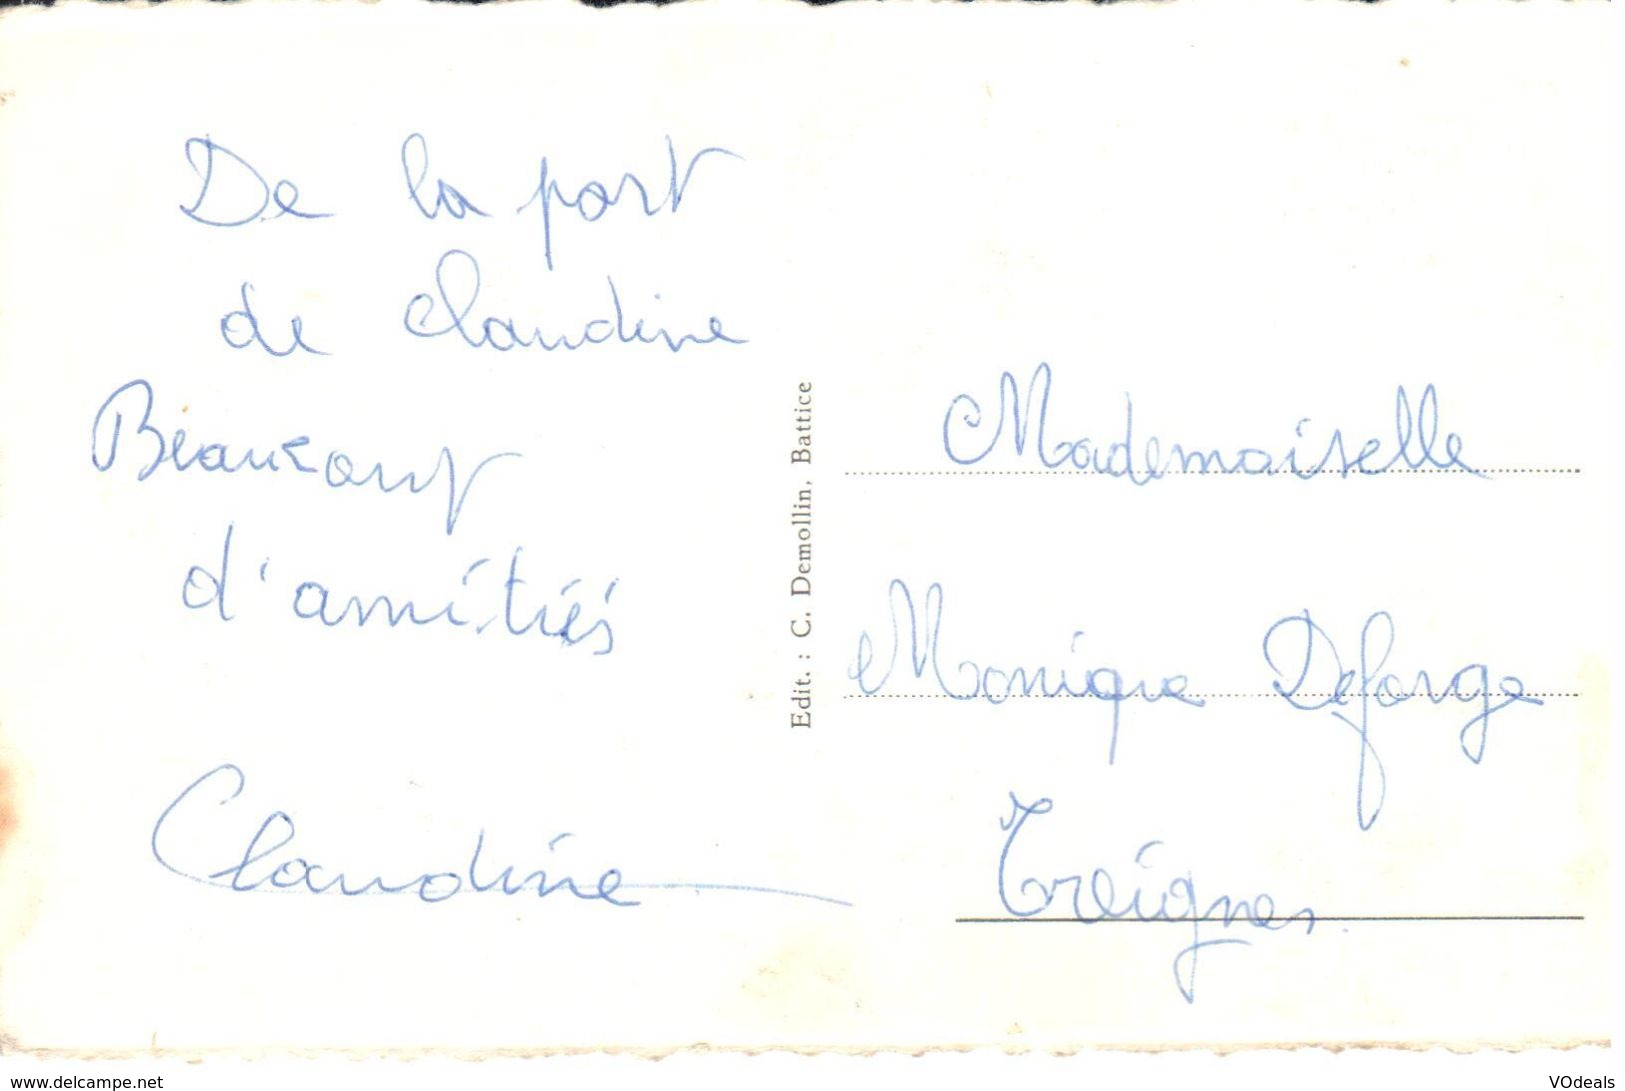 De la part
de Claudine
Beaucoup
d'amitiés
Claudine
Edit. : C. Demollin, Battice
Mademoiselle
Monique Deforge
Treignes.
www.delcampe.net
VOdeals